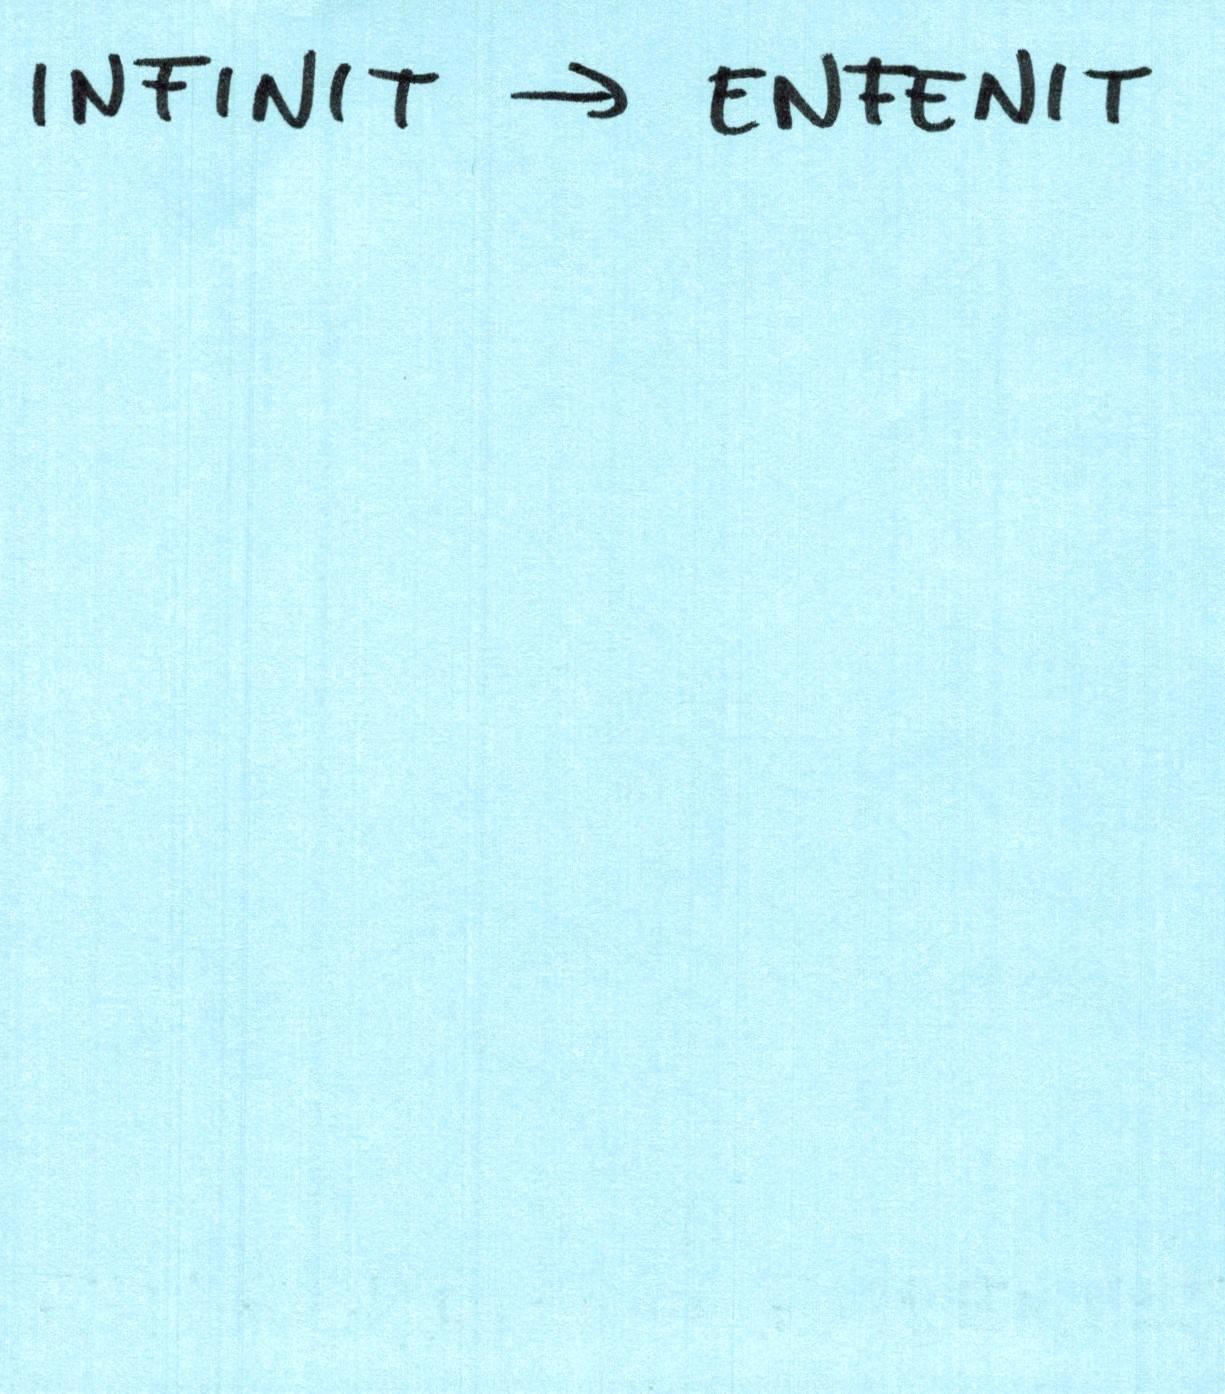 INFINIT → ENFENIT